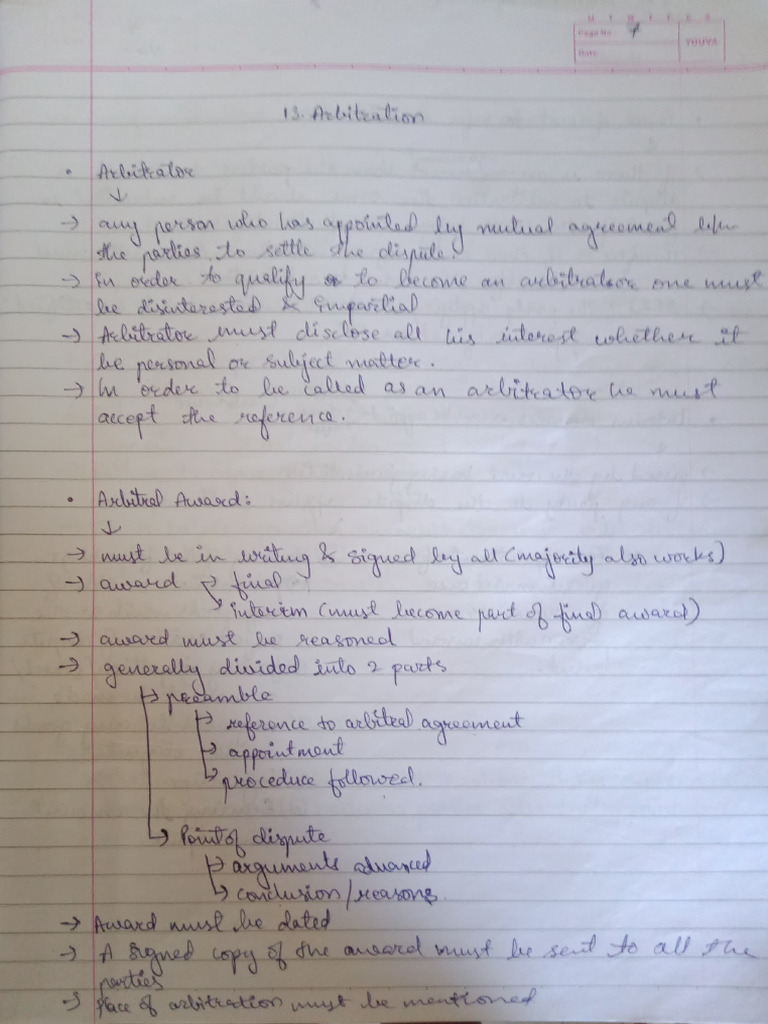 M T W T F S S
Page No. 1
Date:
YOUVA
13. Arbitration
• Arbitrator
↓
→ any person who has appointed by mutual agreement b/w
the parties to settle the dispute.
→ in order to qualify to become an arbitrator one must
be disinterested & impartial
→ Arbitrator must disclose all his interest whether it
be personal or subject matter.
→ In order to be called as an arbitrator he must
accept the reference.
• Arbitral Award:
↓
→ must be in writing & signed by all (majority also works)
→ award → final
→ interim (must become part of final award)
→ award must be reasoned
→ generally divided into 2 parts
→ preamble
→ reference to arbitral agreement
→ appointment
→ procedure followed.
→ Point of dispute
→ arguments advanced
→ conclusion/reasons
→ Award must be dated
→ A signed copy of the award must be sent to all the
parties
→ Place of arbitration must be mentioned